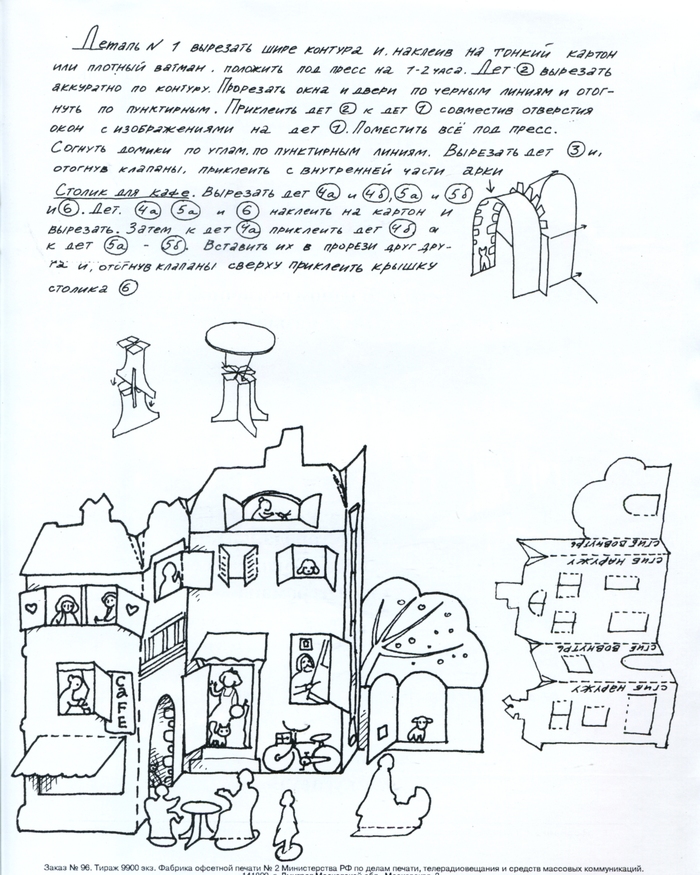 Деталь № 1 вырезать шире контура и, наклеив на тонкий картон
или плотный ватман, положить под пресс на 1-2 часа. Дет ② вырезать
аккуратно по контуру. Прорезать окна и двери по черным линиям и отог-
нуть по пунктирным. Приклеить дет ② к дет ① совместив отверстия
окон с изображениями на дет ①. Поместить всё под пресс.
Согнуть домики по углам, по пунктирным линиям. Вырезать дет ③ и,
отогнув клапаны, приклеить с внутренней части арки
Столик для кафе. Вырезать дет 4а и 4б, 5а и 5б
и ⑥. Дет. 4а 5а и ⑥ наклеить на картон и
вырезать. Затем к дет 4а приклеить дет 4б а
к дет 5а - 5б. Вставить их в прорези друг дру-
га и, отогнув клапаны сверху приклеить крышку
столика ⑥
CAFE
сгиб вовнутрь
сгиб наружу
сгиб вовнутрь
сгиб наружу
Заказ № 96. Тираж 9900 экз. Фабрика офсетной печати № 2 Министерства РФ по делам печати, телерадиовещания и средств массовых коммуникаций.